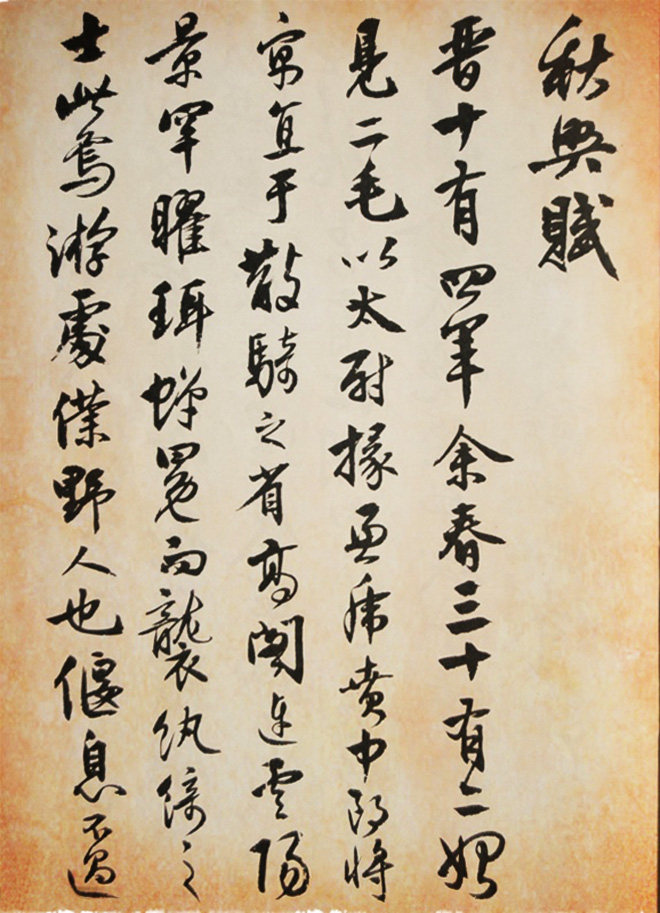 秋興賦
晉十有四年余春三十有二始
見二毛以太尉掾兼虎賁中郎將
寓直于散騎之省高閣連雲陽
景罕曜珥蟬冕而襲紈綺之
士此焉游處僕野人也偃息不過